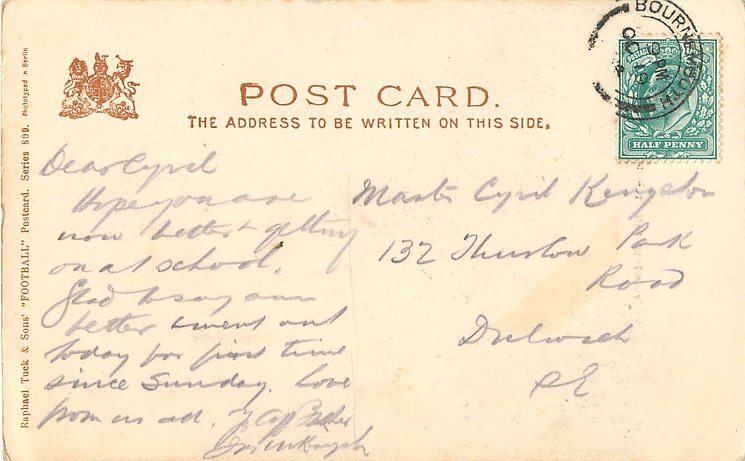 POST CARD.
THE ADDRESS TO BE WRITTEN ON THIS SIDE.
Raphael Tuck & Sons' "FOOTBALL" Postcard. Series 899. Phototyped in Berlin
BOURNEMOUTH
HALF PENNY
Dear Cyril
Hope you are
now better & getting
on at school.
Glad to say am
better & went out
today for first time
since Sunday. Love
from us all.
Master Cyril Kingston
132 Thurlow Park
Road
Dulwich
SE